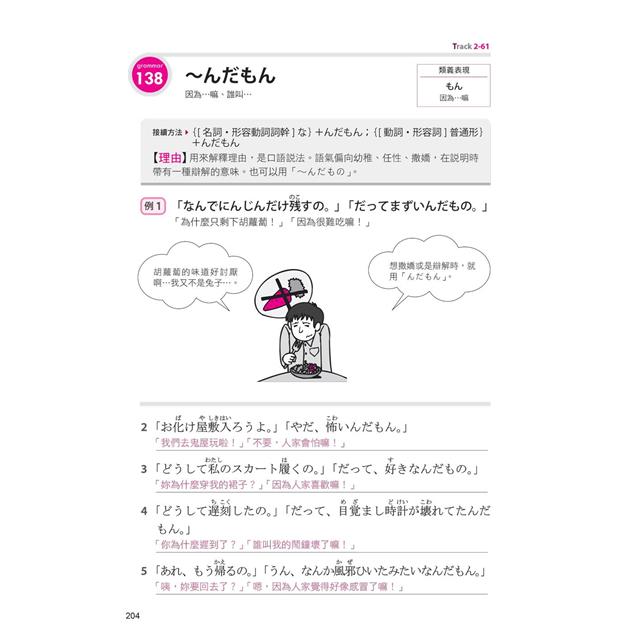 Track 2-61
grammar
138
～んだもん
因為…嘛、誰叫…
類義表現
もん
因為…嘛
接續方法▶{[名詞・形容動詞詞幹]な}＋んだもん；{[動詞・形容詞]普通形}
＋んだもん
【理由】用來解釋理由，是口語說法。語氣偏向幼稚、任性、撒嬌，在說明時
帶有一種辯解的意味。也可以用「～んだもの」。
のこ
例1 「なんでにんじんだけ残すの。」「だってまずいんだもの。」
「為什麼只剩下胡蘿蔔！」「因為很難吃嘛！」
胡蘿蔔的味道好討厭
啊…我又不是兔子…。
想撒嬌或是辯解時，就
用「んだもん」。
ば や しきはい こわ
2 「お化け屋敷入ろうよ。」「やだ、怖いんだもん。」
「我們去鬼屋玩啦！」「不要，人家會怕嘛！」
わたし は す
3 「どうして私のスカート履くの。」「だって、好きなんだもの。」
「妳為什麼穿我的裙子？」「因為人家喜歡嘛！」
ち こく め ざ ど けい こわ
4 「どうして遅刻したの。」「だって、目覚まし時計が壊れてたんだ
もん。」
「你為什麼遲到了？」「誰叫我的鬧鐘壞了嘛！」
かえ か ぜ
5 「あれ、もう帰るの。」「うん、なんか風邪ひいたみたいなんだもん。」
「咦，妳要回去了？」「嗯，因為人家覺得好像感冒了嘛！」
204